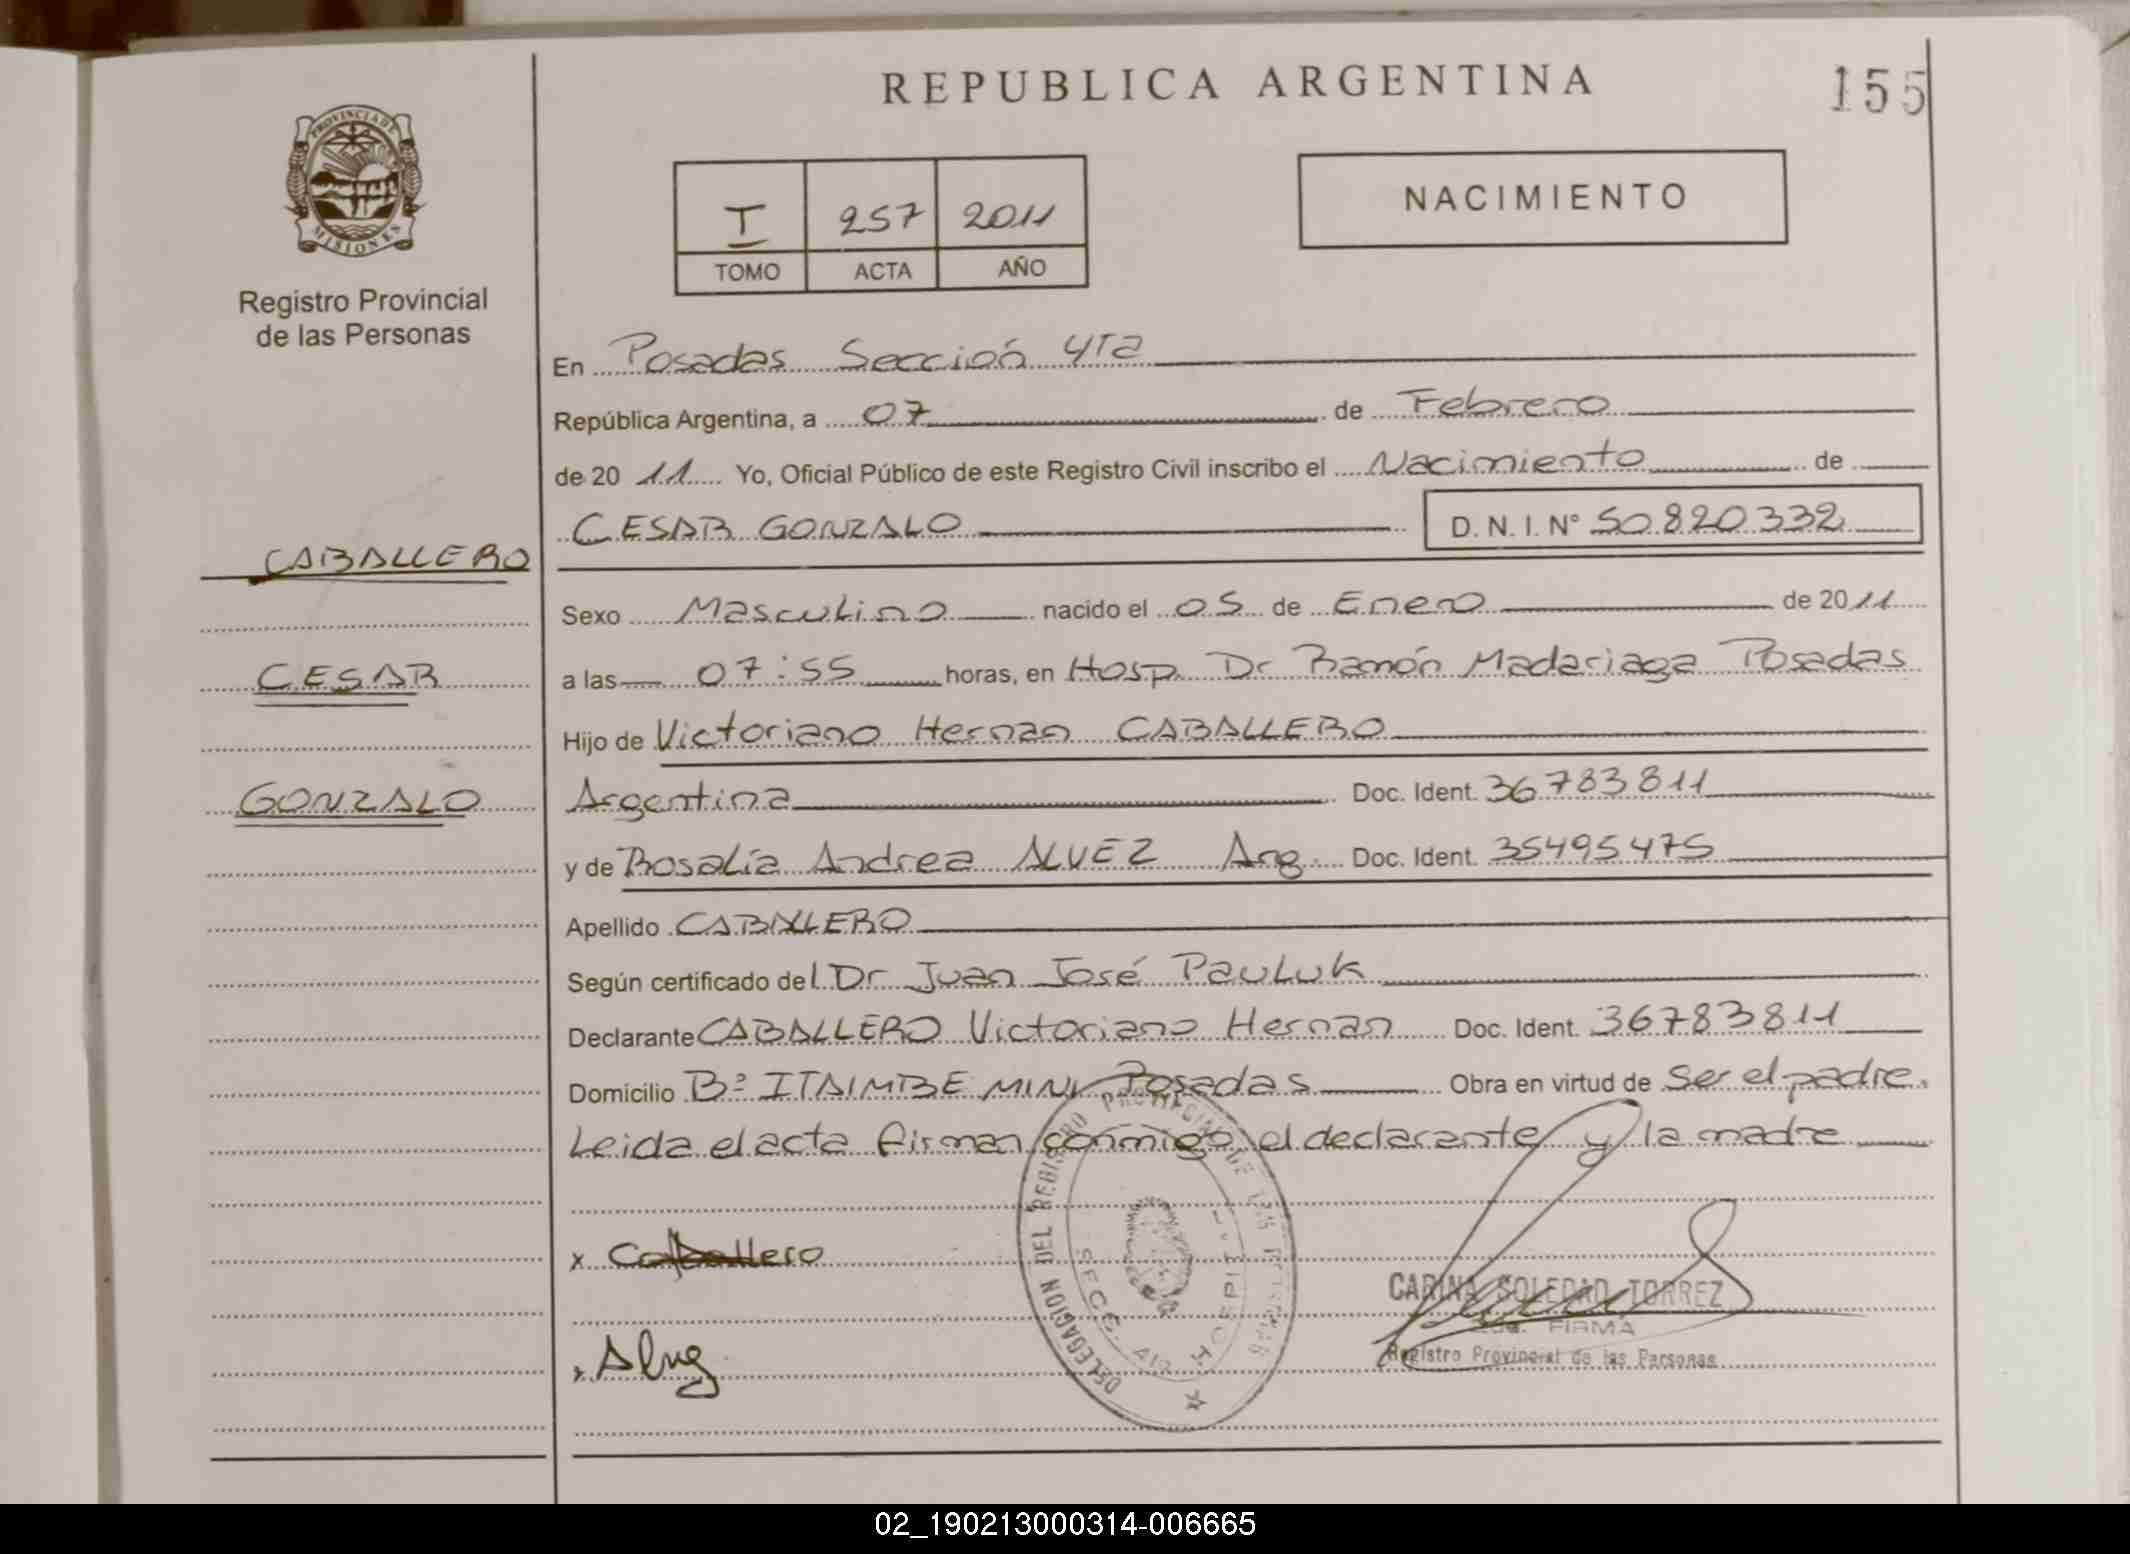 REPUBLICA ARGENTINA
155
PROVINCIA DE
MISIONES
Registro Provincial
de las Personas
I 257 2011
TOMO ACTA AÑO
NACIMIENTO
CABALLERO
CESAR
GONZALO
En Posadas Sección 4ta
República Argentina, a 07 de Febrero
de 2011 Yo, Oficial Público de este Registro Civil inscribo el Nacimiento de
CESAR GONZALO D. N. I. N° 50.820.332
Sexo Masculino nacido el 05 de Enero de 2011
a las 07:55 horas, en Hosp. Dr Ramón Madariaga Posadas
Hijo de Victoriano Hernan CABALLERO
Argentina Doc. Ident. 36783811
y de Rosalía Andrea ALVEZ Arg. Doc. Ident. 35495475
Apellido CABALLERO
Según certificado del Dr Juan José Pauluk
Declarante CABALLERO Victoriano Hernan Doc. Ident. 36783811
Domicilio B° ITAIMBE MINI Posadas Obra en virtud de Ser el padre.
Leida el acta firman conmigo el declarante y la madre
DELEGACION DEL REGISTRO PROVINCIAL DE LAS PERSONAS
SECC. 4TA HOSPITAL
x Caballero
x
CARINA SOLEDAD TORREZ
FIRMA
Registro Provincial de las Personas
02_190213000314-006665